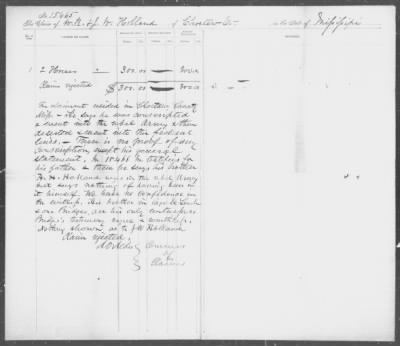 No. 15465
The Claim of W. R. & J. W. Holland of Choctaw Co. in the State of Mississippi
1 2 Horses 300.00 300.00
Claim rejected $300.00 300.00
The claimant resided in Choctaw County
Miss. & he says he was conscripted
& sent into the rebel Army & then
deserted & went into the federal
lines. There is no proof of
conscription except his general
statement. In 15466 he testifies for
his father & then he says his brother
Holland was in the rebel Army
but says nothing of having been in
it himself. We have no confidence in
the witness. His brother in law
& one Bridges, are his only witnesses
Bridges testimony is worthless.
Nothing shown as to J W Holland
Claim rejected.
A. O. Aldis
Commrs
of
Claims